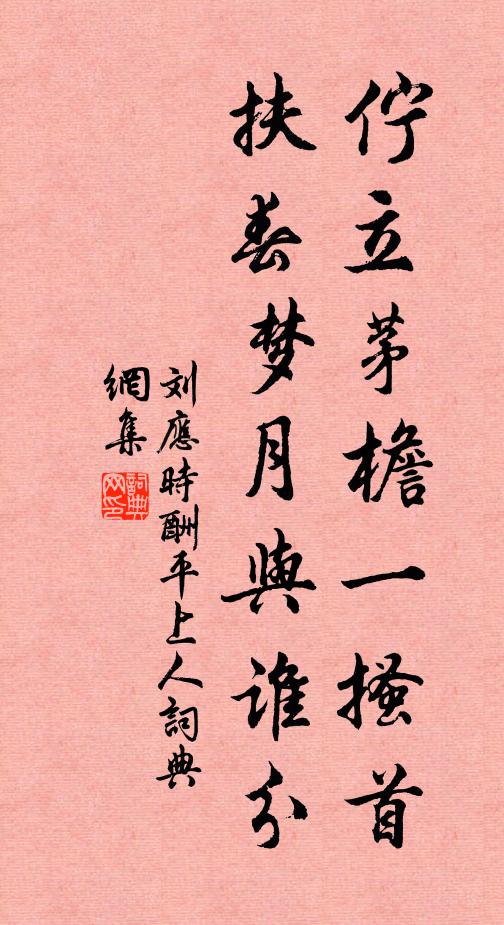 佇立茅檐一搔首
扶春梦月與谁分
刘應時酬平上人詞典
網集
詞典
网印